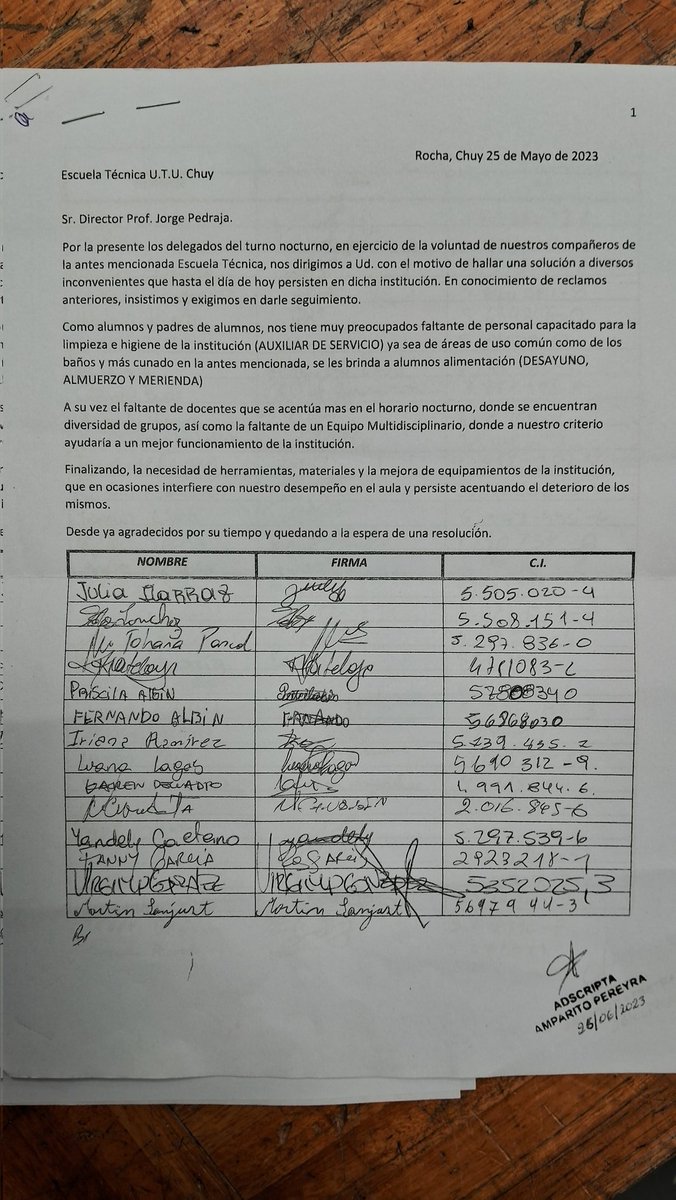 1
Rocha, Chuy 25 de Mayo de 2023
Escuela Técnica U.T.U. Chuy
Sr. Director Prof. Jorge Pedraja.
Por la presente los delegados del turno nocturno, en ejercicio de la voluntad de nuestros compañeros de
la antes mencionada Escuela Técnica, nos dirigimos a Ud. con el motivo de hallar una solución a diversos
inconvenientes que hasta el día de hoy persisten en dicha institución. En conocimiento de reclamos
anteriores, insistimos y exigimos en darle seguimiento.
Como alumnos y padres de alumnos, nos tiene muy preocupados faltante de personal capacitado para la
limpieza e higiene de la institución (AUXILIAR DE SERVICIO) ya sea de áreas de uso común como de los
baños y más cunado en la antes mencionada, se les brinda a alumnos alimentación (DESAYUNO,
ALMUERZO Y MERIENDA)
A su vez el faltante de docentes que se acentúa mas en el horario nocturno, donde se encuentran
diversidad de grupos, así como la faltante de un Equipo Multidisciplinario, donde a nuestro criterio
ayudaría a un mejor funcionamiento de la institución.
Finalizando, la necesidad de herramientas, materiales y la mejora de equipamientos de la institución,
que en ocasiones interfiere con nuestro desempeño en el aula y persiste acentuando el deterioro de los
mismos.
Desde ya agradecidos por su tiempo y quedando a la espera de una resolución.
NOMBRE FIRMA C.I.
Julia 5.505.020-4
5.508.151-4
Johana 5.297.836-0
PRISCILA ALBÍN
FERNANDO ALBIN FERNANDO
Ramírez
Luana Lagos 5690 312-9.
4.991.844.6.
2.016.845-6
Yandely Caetano yandely 5.297.539-6
FANNY GARCÍA 2923218-1
Martin Sanjurt Martin Sanjurt
ADSCRIPTA
AMPARITO PEREYRA
/06/2023